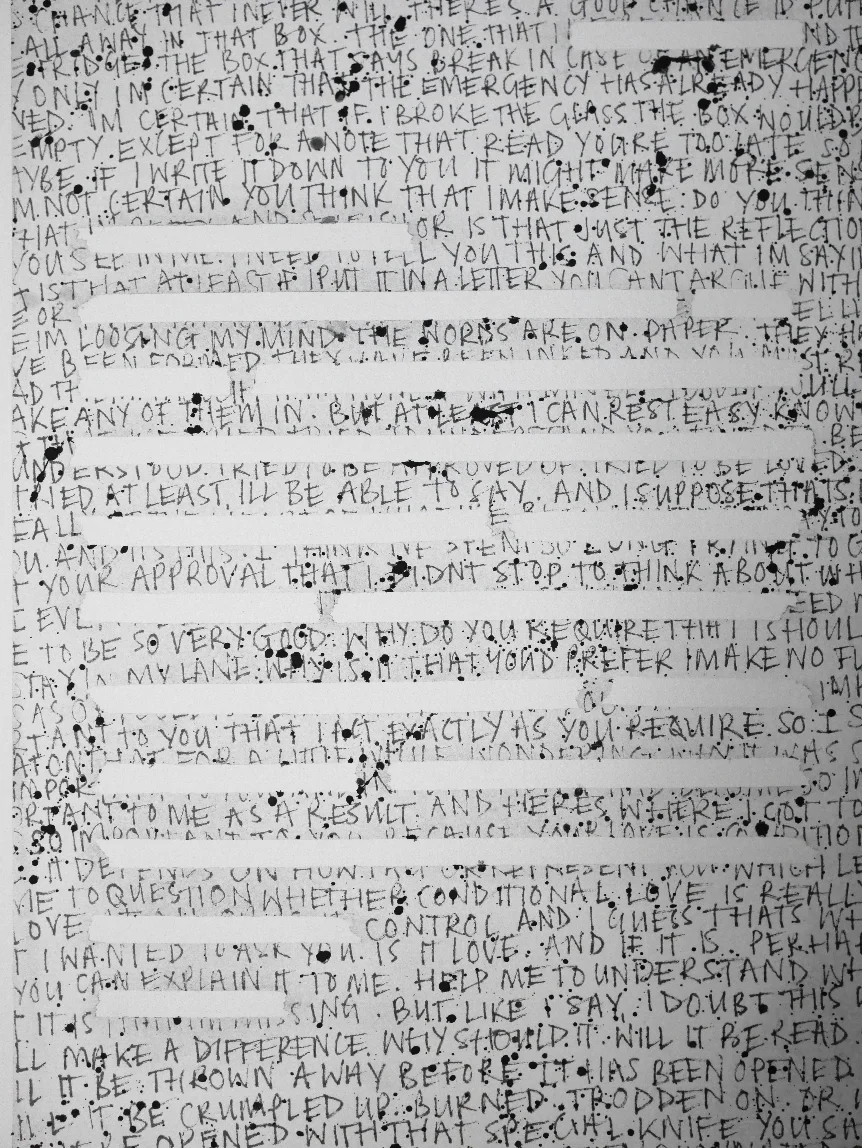 CHANCE THAT I NEVER WILL. THERES A GOOD CHANCE ID PUT
ALL AWAY IN THAT BOX. THE ONE THAT I ND
THE BOX THAT SAYS BREAK IN CASE OF AN EMERGENC
ONLY IM CERTAIN THAT THE EMERGENCY HAS ALREADY HAPP
ED. IM CERTAIN THAT IF I BROKE THE GLASS THE BOX WOULD
EMPTY. EXCEPT FOR A NOTE THAT READ YOURE TOO LATE SO
YBE IF I WRITE IT DOWN TO YOU IT MIGHT MAKE MORE SEN
M NOT CERTAIN YOU THINK THAT I MAKE SENSE. DO YOU THIN
HAT OR IS THAT JUST THE REFLECTIO
YOU SEE IN ME. I NEED TO TELL YOU THIS. AND WHAT IM SAYI
IS THAT AT LEAST IF I PUT IT IN A LETTER YOU CANT ARGUE WITH
OR ELLI
E IM LOOSING MY MIND. THE WORDS ARE ON PAPER. THEY H
VE BEEN FORMED THEY HAVE BEEN INKED AND YOU MUST R
AD IT
AKE ANY OF THEM IN. BUT AT LEAST I CAN REST EASY KNOW
BE
UNDERSTOOD. TRIED TO BE APPROVED OF. TRIED TO BE LOVED.
TRIED AT LEAST ILL BE ABLE TO SAY. AND I SUPPOSE THATS
EALL
OU. AND ITS THIS. I THINK IVE SPENT SO LONG TRYING TO G
T YOUR APPROVAL THAT I DIDNT STOP TO THINK ABOUT WH
EED
E TO BE SO VERY GOOD. WHY DO YOU REQUIRE THAT I SHOUL
STAY IN MY LANE. WHY IS IT THAT YOUD PREFER I MAKE NO FU
IM
RTANT TO YOU THAT I ACT EXACTLY AS YOU REQUIRE. SO I S
AT ON THAT FOR A LITTLE WHILE WONDERING WHY IT WAS S
IMPOR SO IM
ORTANT TO ME AS A RESULT. AND HERES WHERE I GOT TO
SO IMPORTANT TO YOU BECAUSE YOUR LOVE IS CONDITION
IT DEPENDS ON HOW I REPRESENT YOU. WHICH LE
ME TO QUESTION WHETHER CONDITIONAL LOVE IS REALL
LOVE CONTROL. AND I GUESS THATS WH
T I WANTED TO ASK YOU. IS IT LOVE. AND IF IT IS. PERHA
YOU CAN EXPLAIN IT TO ME. HELP ME TO UNDERSTAND WH
T IT IS SING. BUT LIKE I SAY, I DOUBT THIS
LL MAKE A DIFFERENCE. WHY SHOULD IT. WILL IT BE READ.
LL IT BE THROWN AWAY BEFORE IT HAS BEEN OPENED.
LL IT BE CRUMPLED UP. BURNED. TRODDEN ON. OR
BE OPENED WITH THAT SPECIAL KNIFE YOU SA